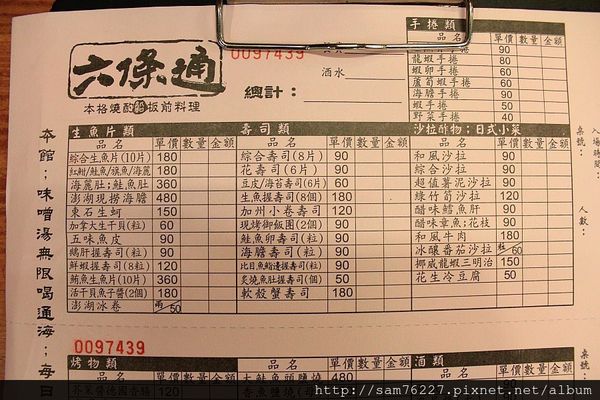 手捲類
品名 單價 數量 金額
90
龍蝦手捲 80
蝦卵手捲 60
蘆筍蝦手捲 60
海膽手捲 90
蝦手捲 50
野菜手捲 40
0097439
酒水
總計：
六條通
本格燒酌 板前料理
生魚片類 單價 數量 金額
品名
綜合生魚片(10片) 180
紅魽/鮭魚/旗魚/海鱺 180
海鱺肚;鮭魚肚 360
澎湖現撈海膽 480
東石生蚵 150
加拿大生干貝(粒) 60
五味魚皮 90
鵝肝握壽司(粒) 90
鮮蝦握壽司(8粒) 120
鮪魚生魚片(10片) 360
活干貝魚子醬(2個) 180
澎湖冰卷 兩/50
壽司類
品名 單價 數量 金額
綜合壽司(8片) 90
花壽司(6片) 60
豆皮/海苔壽司(6片) 60
生魚握壽司(8個) 180
加州小卷壽司 120
現烤御飯團(2個) 90
鮭魚卵壽司(粒) 90
海膽壽司(粒) 90
比目魚鰭邊握壽司(粒) 90
炙燒魚肚握壽司(個) 50
軟殼蟹壽司 180
沙拉酢物;日式小菜
品名 單價 數量 金額
和風沙拉 90
綜合沙拉 90
超值薯泥沙拉 90
綠竹筍沙拉 120
醋味鱈魚肝 90
醋味章魚;花枝 90
和風牛肉 180
冰釀番茄沙拉 粒/60
挪威龍蝦三明治 150
花生冷豆腐 50
本館：味噌湯無限喝通海；每日
入場時間：
桌號：
人數：
0097439
烤物類
品名 單價 數量 金額
120
品名 單價 數量 金額
大鮭魚頭鹽燒 480
酒類
品名
桌號：
http://sam76227.pixnet.net/album